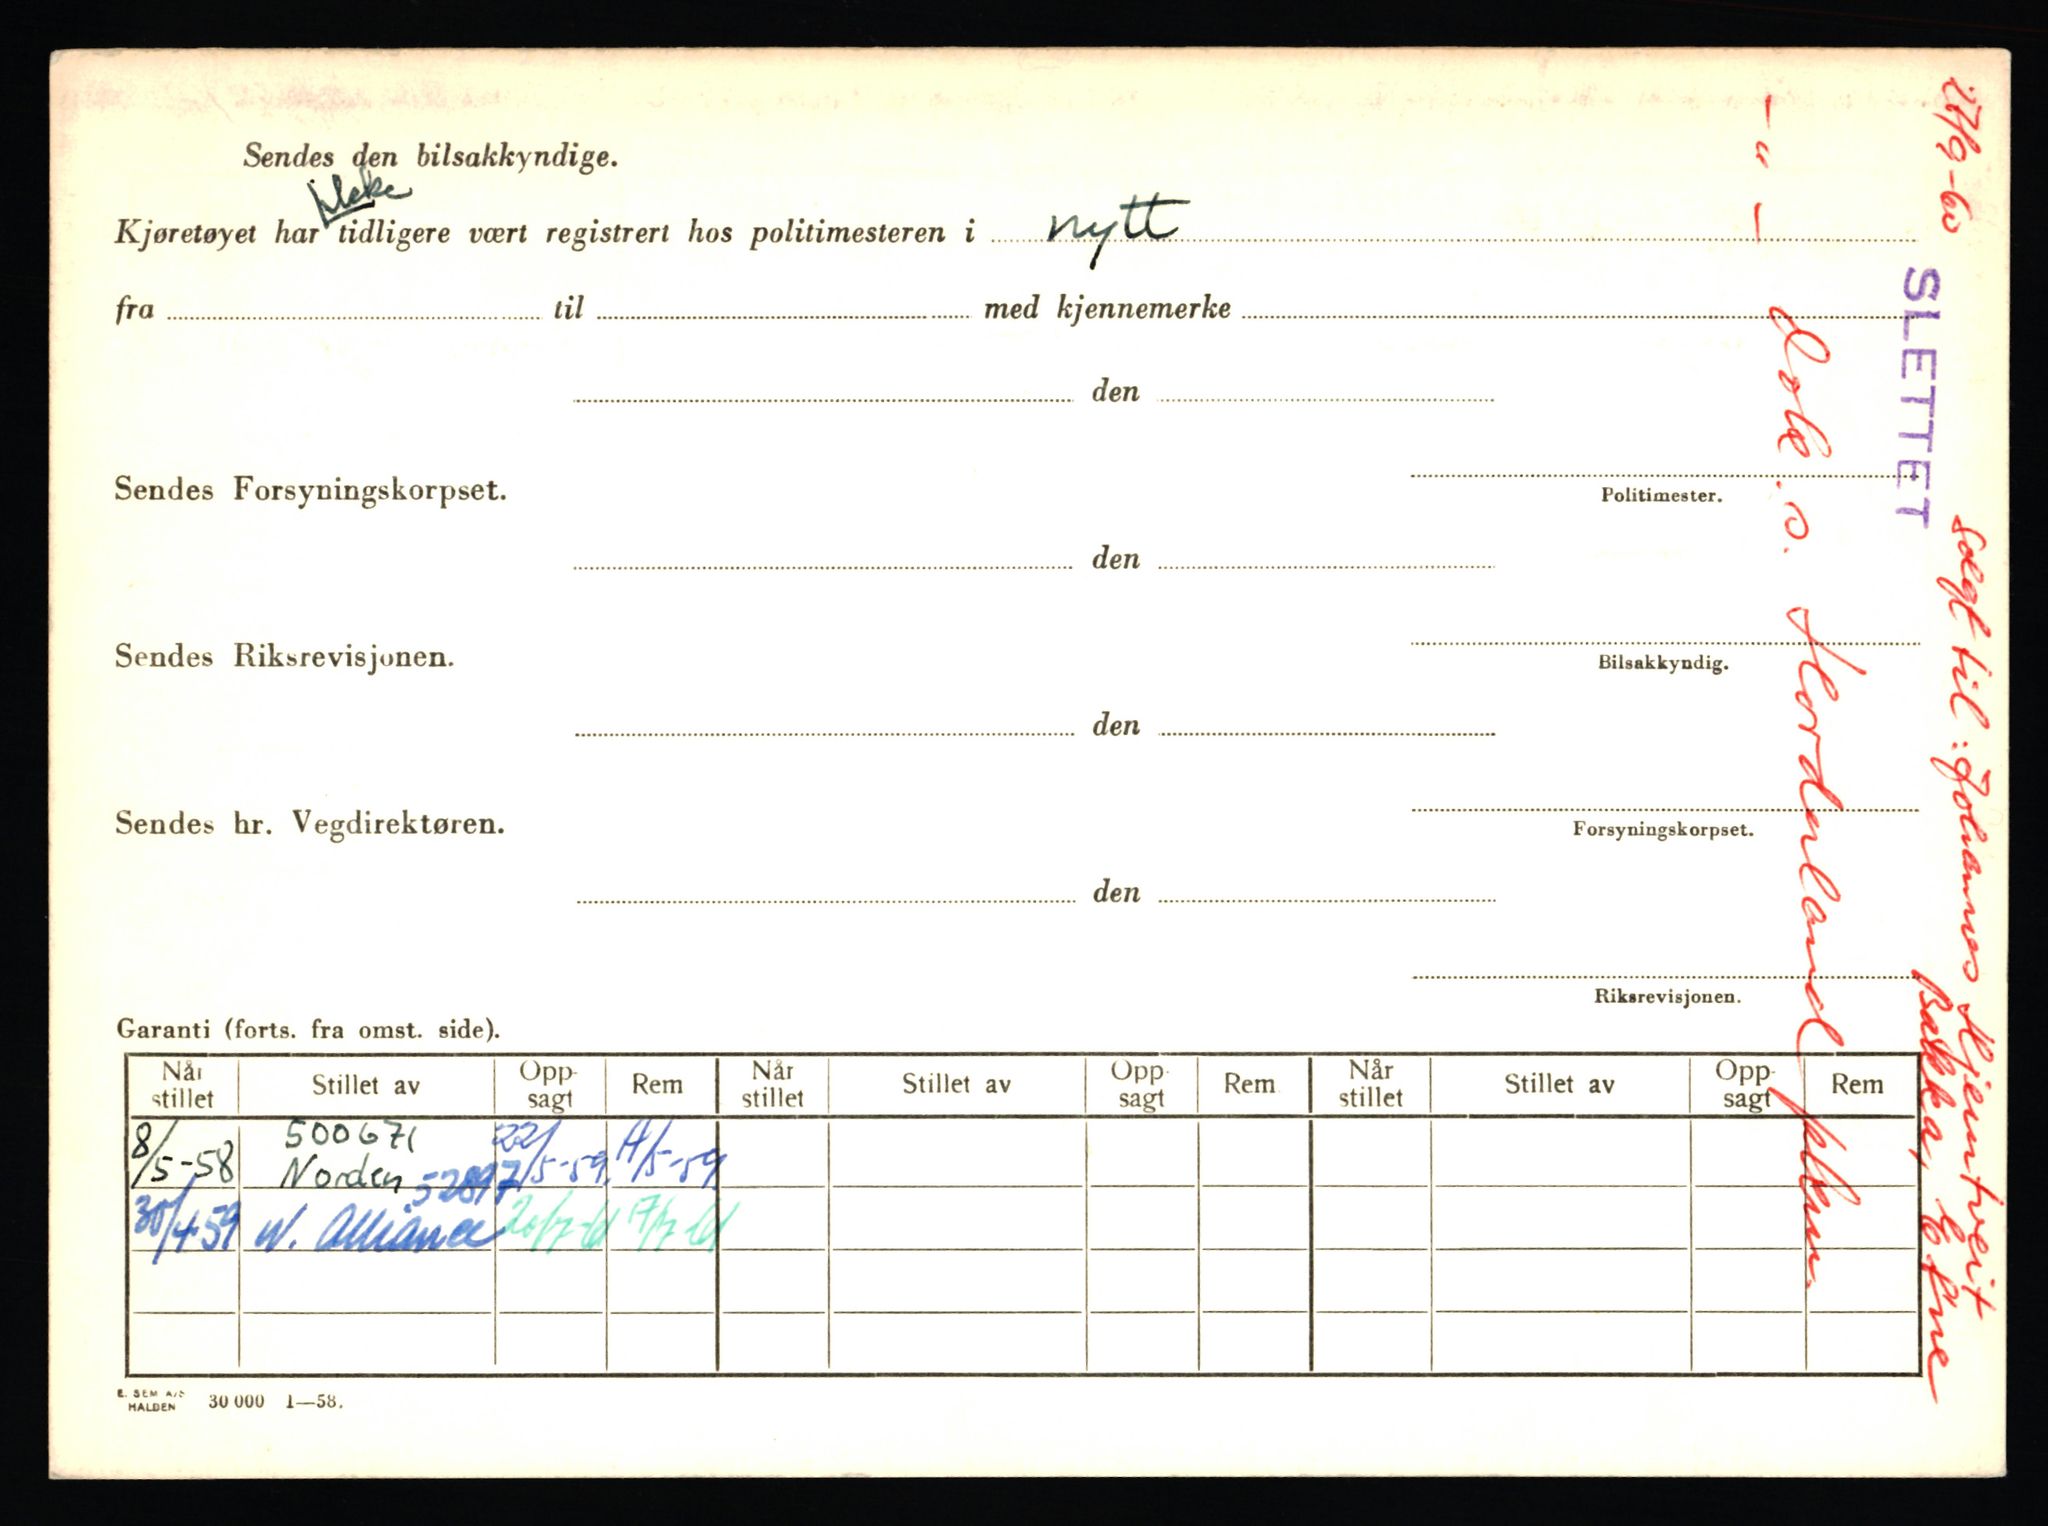 Sendes den bilsakkyndige.
ikke
Kjøretøyet har tidligere vært registrert hos politimesteren i nytt
fra til med kjennemerke
den
Politimester.
Sendes Forsyningskorpset.
den
Bilsakkyndig.
Sendes Riksrevisjonen.
den
Forsyningskorpset.
Sendes hr. Vegdirektøren.
den
Riksrevisjonen.
Garanti (forts. fra omst. side).
Når stillet Stillet av Opp-sagt Rem Når stillet Stillet av Opp-sagt Rem Når stillet Stillet av Opp-sagt Rem
8/5-58 500671 Norden 22/5-59 A/5-59
30/4-59 52897 N. Alliance 20/7-61 17/7-61
E. SEM A/S
HALDEN 30 000 1—58.
27/9-60
SLETTET
Solgt til: Johannes Hjemtveit
Bakka, Etne
— " —
Hordaland